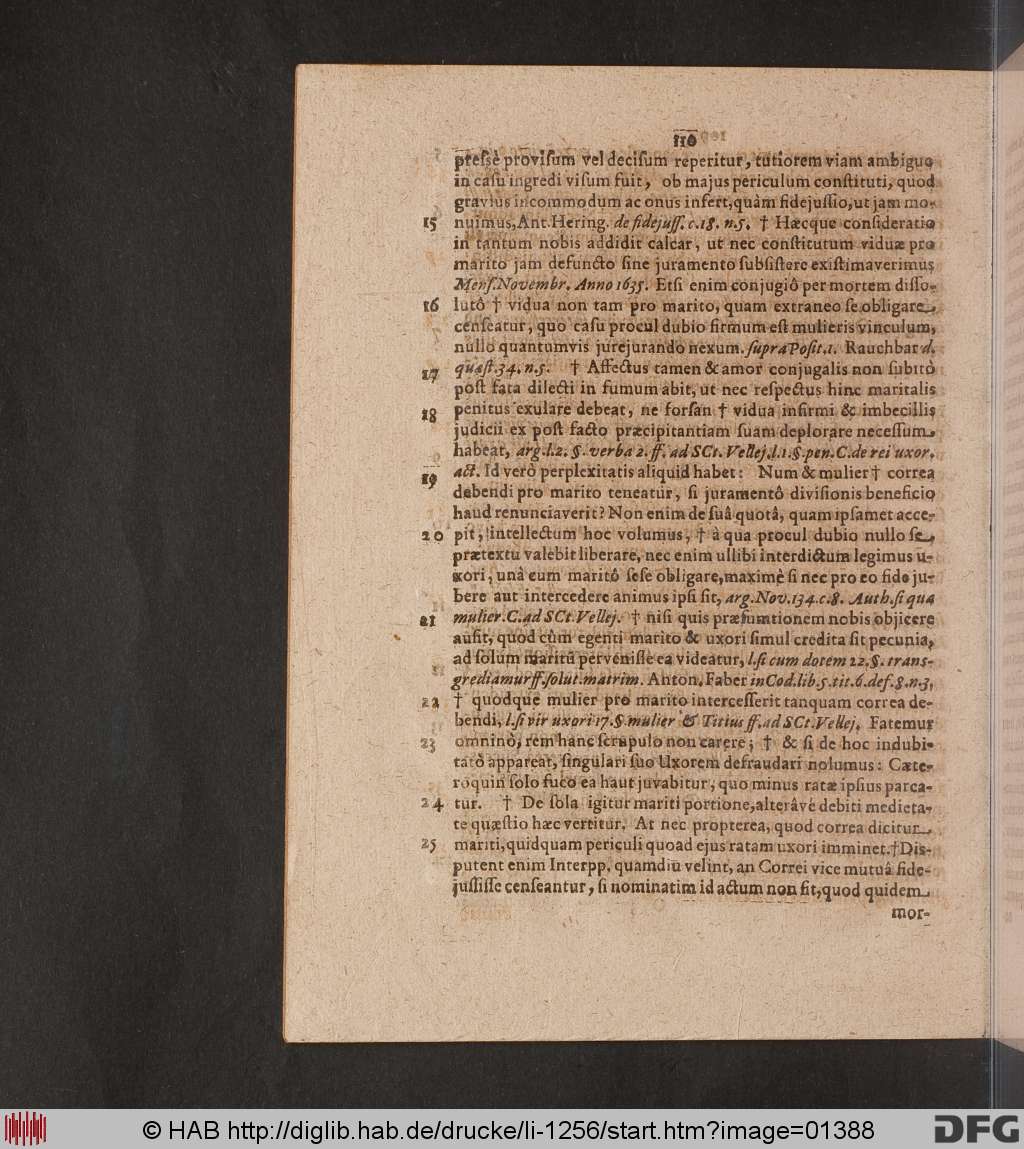 110
pressè provisum vel decisum reperitur, tutiorem viam ambiguo
in casu ingredi visum fuit, ob majus periculum constituti, quod
gravius incommodum ac onus infert, quàm fidejussio, ut jam mo-
15 nuimus, Ant. Hering. de fidejuss. c. 18. n. 5. † Hæcque consideratio
in tantum nobis addidit calcar, ut nec constitutum viduæ pro
marito jam defuncto sine juramento subsistere existimaverimus
Mens. Novembr. Anno 1635. Etsi enim conjugiô per mortem disso-
16 lutô † vidua non tam pro marito, quam extraneo se obligare
censeatur, quo casu procul dubio firmum est mulieris vinculum,
nullo quantumvis jurejurando nexum. supra Posit. 1. Rauchbar d.
17 quæst. 34. n. 5. † Affectus tamen & amor conjugalis non subitò
post fata dilecti in fumum abit, ut nec respectus hinc maritalis
18 penitus exulare debeat, ne forsan † vidua infirmi & imbecillis
judicii ex post facto præcipitantiam suam deplorare necessum
habeat, arg. l. 2. §. verba 2. ff. ad SCt. Vellej. l. 1. §. pen. C. de rei uxor.
19 act. Id verò perplexitatis aliquid habet: Num & mulier † correa
debendi pro marito teneatur, si juramentô divisionis beneficio
haud renunciaverit? Non enim de suâ quotâ, quam ipsamet acce-
20 pit, intellectum hoc volumus, † à qua procul dubio nullo se
prætextu valebit liberare, nec enim ullibi interdictum legimus u-
xori, unà cum maritô sese obligare, maximè si nec pro eo fide ju-
bere aut intercedere animus ipsi sit, arg. Nov. 134. c. 8. Auth. si qua
21 mulier. C. ad SCt. Vellej. † nisi quis præsumtionem nobis objicere
ausit, quod cùm egenti marito & uxori simul credita sit pecunia,
ad solum maritũ pervenisse ea videatur, l. si cum dotem 22. §. trans-
grediamur ff. solut. matrim. Anton. Faber in Cod. lib. 5. tit. 6. def. 8. n. 3,
22 † quodque mulier pro marito intercesserit tanquam correa de-
bendi, l. si vir uxori 17. §. mulier & Titius ff. ad SCt. Vellej. Fatemur
23 omninò, rem hanc scrupulo non carere; † & si de hoc indubi-
tatò appareat, singulari suo Uxorem defraudari nolumus: Cæte-
roquin solo fuco ea haut juvabitur, quo minus ratæ ipsius parca-
24 tur. † De sola igitur mariti portione, alterâve debiti medieta-
te quæstio hæc vertitur. At nec propterea, quod correa dicitur
25 mariti, quidquam periculi quoad ejus ratam uxori imminet. † Dis-
putent enim Interpp. quamdiu velint, an Correi vice mutuâ fide-
jussisse censeantur, si nominatim id actum non sit, quod quidem
mor-
© HAB http://diglib.hab.de/drucke/li-1256/start.htm?image=01388
DFG